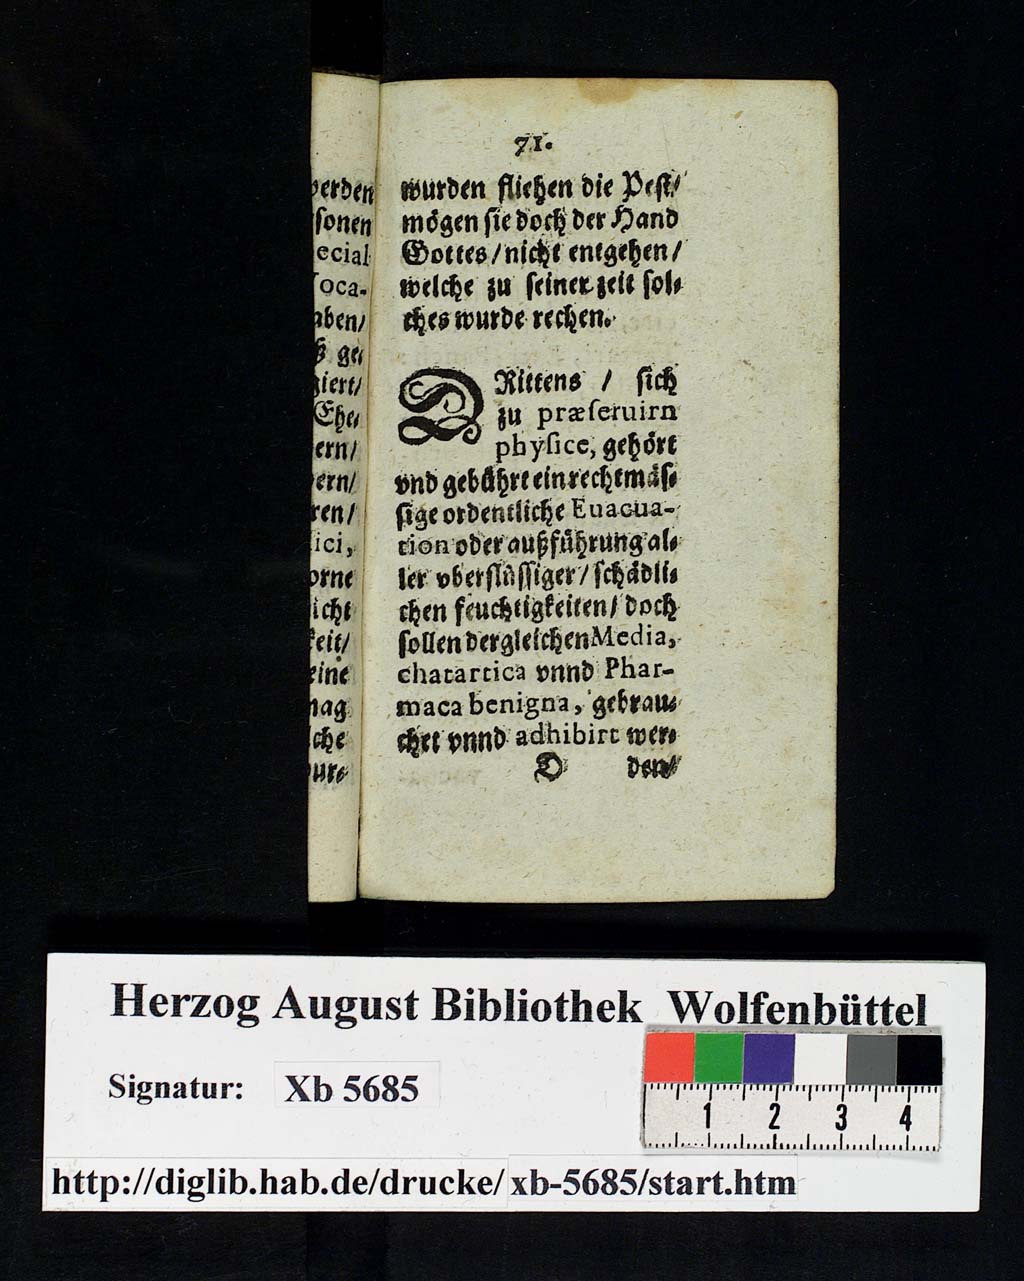 71.
wurden fliehen die Pest/
mögen sie doch der Hand
Gottes / nicht entgehen /
welche zu seiner zeit sol-
ches wurde rechen.
DRittens / sich
zu præseruirn
physice, gehört
vnd gebührt ein rechtmäs-
sige ordentliche Euacua-
tion oder außführung al-
ler vberflüssiger / schädli-
chen feuchtigkeiten / doch
sollen dergleichen Media,
chatartica vnnd Phar-
maca benigna, gebrau-
chet vnnd adhibirt wer-
D den/
Herzog August Bibliothek Wolfenbüttel
Signatur: Xb 5685
1 2 3 4
http://diglib.hab.de/drucke/xb-5685/start.htm